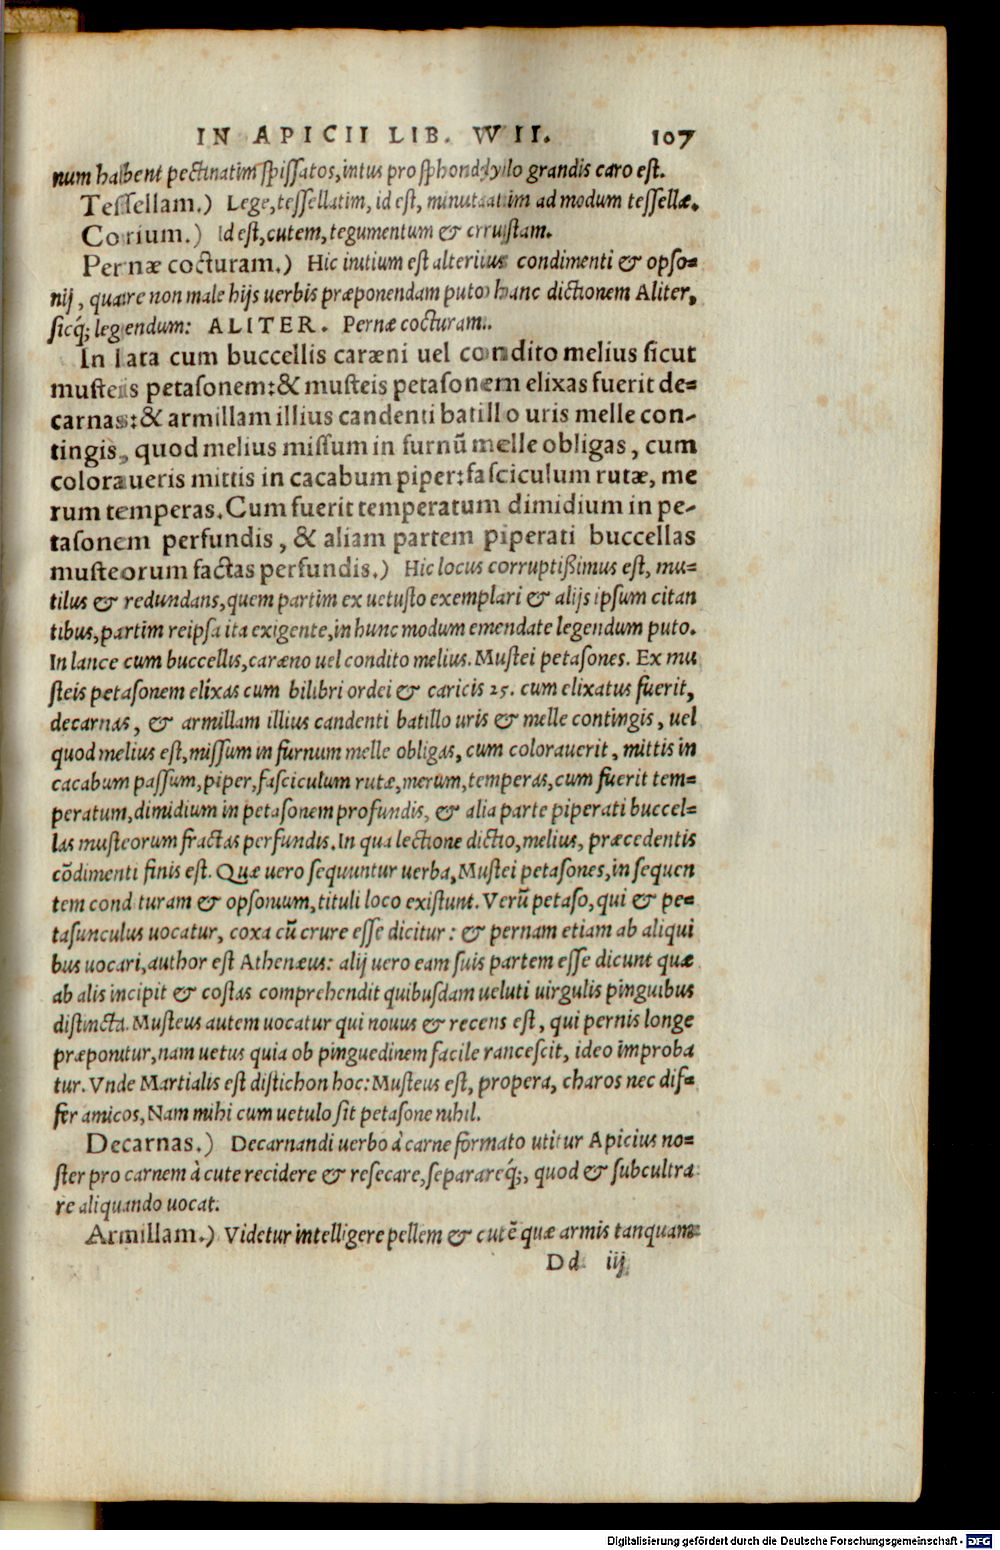 IN APICII LIB. VVII. 107
num habent pectinatim spissatos, intus pro sphondylo grandis caro est.
Tessellam.) Lege, tessellatim, id est, minutatim ad modum tessellæ.
Corium.) Id est, cutem, tegumentum & crustam.
Pernæ cocturam.) Hic initium est alterius condimenti & opso=
nij, quare non male hijs uerbis præponendam puto hanc dictionem Aliter,
sicq́; legendum: ALITER. Pernæ cocturam.
In lata cum buccellis caræni uel condito melius sicut
musteis petasonem:& musteis petasonem elixas fuerit de=
carnas:& armillam illius candenti batillo uris melle con-
tingis, quod melius missum in furnũ melle obligas, cum
coloraueris mittis in cacabum piper:fasciculum rutæ, me
rum temperas. Cum fuerit temperatum dimidium in pe-
tasonem perfundis, & aliam partem piperati buccellas
musteorum factas perfundis.) Hic locus corruptißimus est, mu=
tilus & redundans, quem partim ex uetusto exemplari & alijs ipsum citan
tibus, partim reipsa ita exigente, in hunc modum emendate legendum puto.
In lance cum buccellis, caræno uel condito melius. Mustei petasones. Ex mu
steis petasonem elixas cum bilibri ordei & caricis 25. cum elixatus fuerit,
decarnas, & armillam illius candenti batillo uris & melle contingis, uel
quod melius est, missum in furnum melle obligas, cum colorauerit, mittis in
cacabum passum, piper, fasciculum rutæ, merum, temperas, cum fuerit tem=
peratum, dimidium in petasonem profundis, & alia parte piperati buccel=
las musteorum fractas perfundis. In qua lectione dictio, melius, præcedentis
cõdimenti finis est. Quæ uero sequuntur uerba, Mustei petasones, in sequen
tem cond turam & opsonium, tituli loco existunt. Verũ petaso, qui & pe=
tasunculus uocatur, coxa cũ crure esse dicitur: & pernam etiam ab aliqui
bus uocari, author est Athenæus: alij uero eam suis partem esse dicunt quæ
ab alis incipit & costas comprehendit quibusdam ueluti uirgulis pinguibus
distincta. Musteus autem uocatur qui nouus & recens est, qui pernis longe
præponitur, nam uetus quia ob pinguedinem facile rancescit, ideo improba
tur. Vnde Martialis est distichon hoc: Musteus est, propera, charos nec dif=
fer amicos, Nam mihi cum uetulo sit petasone nihil.
Decarnas.) Decarnandi uerbo à carne formato utitur Apicius no=
ster pro carnem à cute recidere & resecare, separareq́;, quod & subcultra
re aliquando uocat.
Armillam.) Videtur intelligere pellem & cutẽ quæ armis tanquam
Dd iij
Digitalisierung gefördert durch die Deutsche Forschungsgemeinschaft - DFG